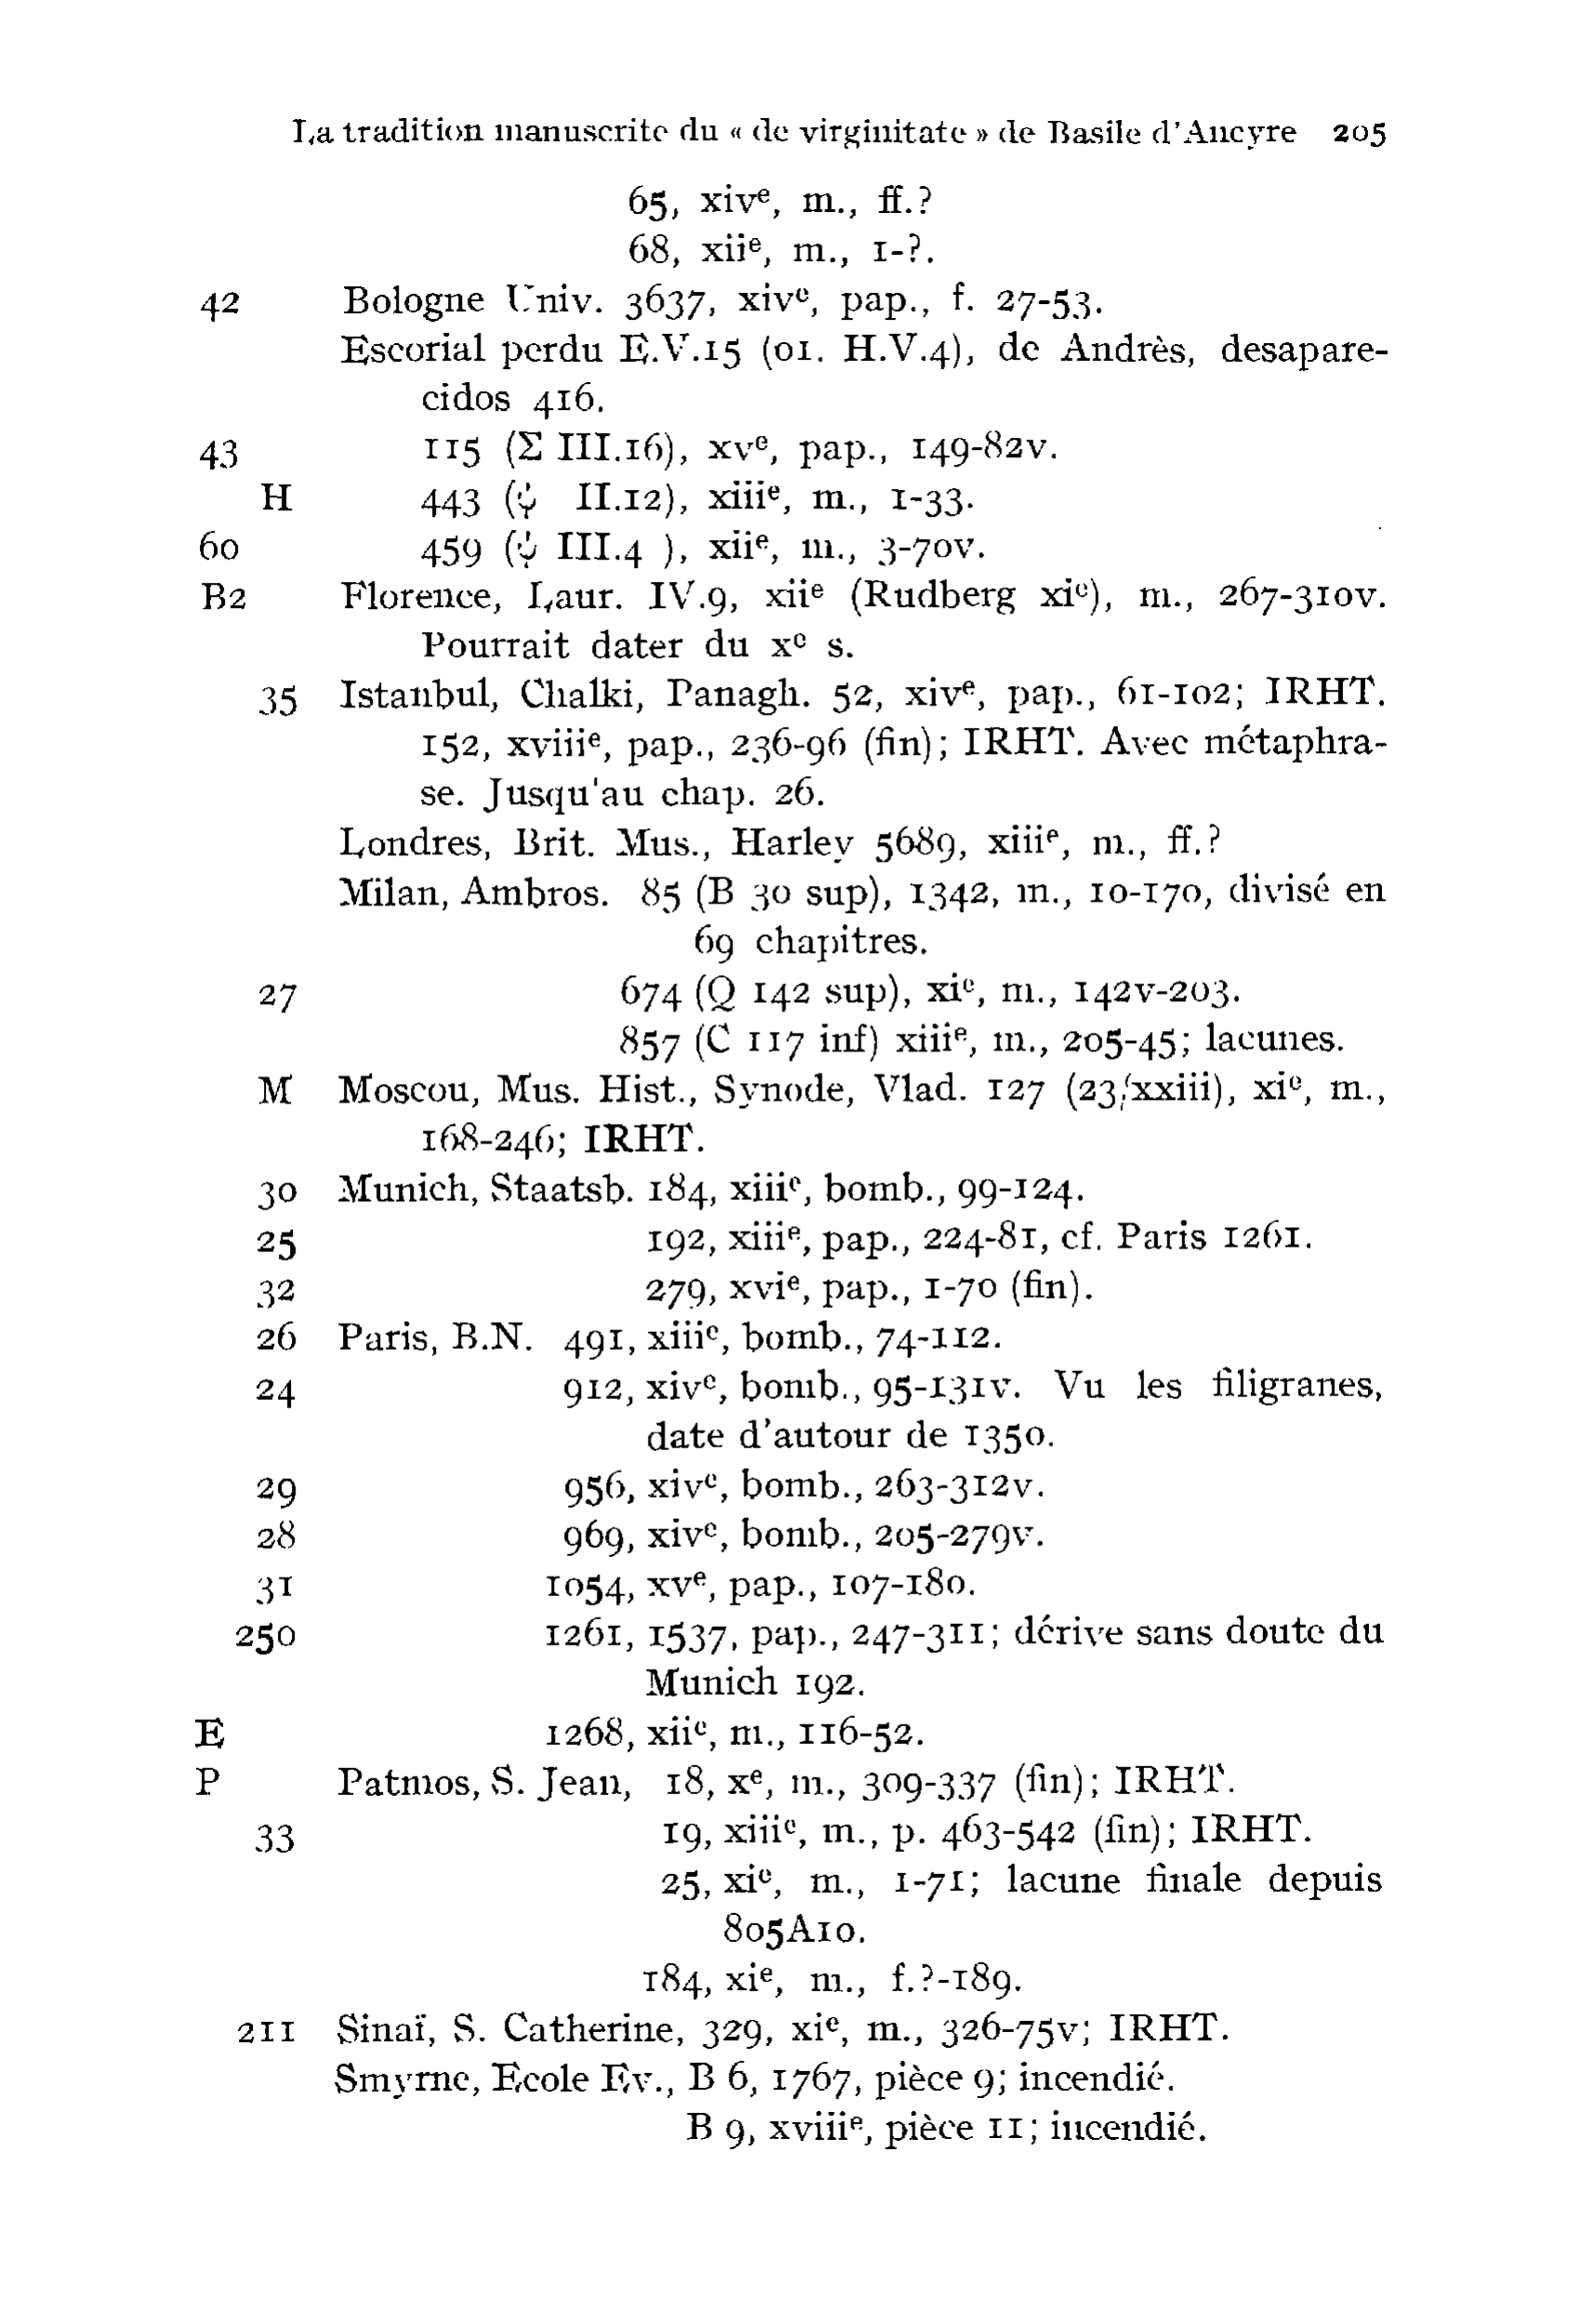 La tradition manuscrite du « de virginitate » de Basile d'Ancyre 205
65, xivᵉ, m., ff.?
68, xiiᵉ, m., 1-?.
42 Bologne Univ. 3637, xivᵉ, pap., f. 27-53.
Escorial perdu E.V.15 (ol. H.V.4), de Andrès, desapare-
cidos 416.
43 115 (Σ III.16), xvᵉ, pap., 149-82v.
H 443 (ψ II.12), xiiiᵉ, m., 1-33.
60 459 (ψ III.4 ), xiiᵉ, m., 3-70v.
B2 Florence, Laur. IV.9, xiiᵉ (Rudberg xiᵉ), m., 267-310v.
Pourrait dater du xᵉ s.
35 Istanbul, Chalki, Panagh. 52, xivᵉ, pap., 61-102; IRHT.
152, xviiiᵉ, pap., 236-96 (fin); IRHT. Avec métaphra-
se. Jusqu'au chap. 26.
Londres, Brit. Mus., Harley 5689, xiiiᵉ, m., ff.?
Milan, Ambros. 85 (B 30 sup), 1342, m., 10-170, divisé en
69 chapitres.
27 674 (Q 142 sup), xiᵉ, m., 142v-203.
857 (C 117 inf) xiiiᵉ, m., 205-45; lacunes.
M Moscou, Mus. Hist., Synode, Vlad. 127 (23/xxiii), xiᵉ, m.,
168-246; IRHT.
30 Munich, Staatsb. 184, xiiiᵉ, bomb., 99-124.
25 192, xiiiᵉ, pap., 224-81, cf. Paris 1261.
32 279, xviᵉ, pap., 1-70 (fin).
26 Paris, B.N. 491, xiiiᵉ, bomb., 74-112.
24 912, xivᵉ, bomb., 95-131v. Vu les filigranes,
date d'autour de 1350.
29 956, xivᵉ, bomb., 263-312v.
28 969, xivᵉ, bomb., 205-279v.
31 1054, xvᵉ, pap., 107-180.
250 1261, 1537, pap., 247-311; dérive sans doute du
Munich 192.
E 1268, xiiᵉ, m., 116-52.
P Patmos, S. Jean, 18, xᵉ, m., 309-337 (fin); IRHT.
33 19, xiiiᵉ, m., p. 463-542 (fin); IRHT.
25, xiᵉ, m., 1-71; lacune finale depuis
805A10.
184, xiᵉ, m., f.?-189.
211 Sinaï, S. Catherine, 329, xiᵉ, m., 326-75v; IRHT.
Smyrne, Ecole Ev., B 6, 1767, pièce 9; incendié.
B 9, xviiiᵉ, pièce 11; incendié.